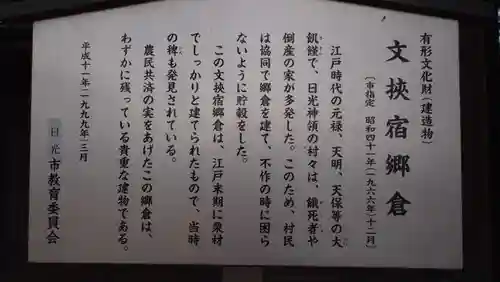 有形文化財(建造物)
文挾宿郷倉
〔市指定 昭和四十一年(一九六六年)十二月〕
江戸時代の元禄、天明、天保等の大
飢饉で、日光神領の村々は、餓死者や
倒産の家が多発した。このため、村民
は協同で郷倉を建て、不作の時に困ら
ないように貯穀をした。
この文挾宿郷倉は、江戸末期に栗材
でしっかりと建てられたもので、当時
の稗も発見されている。
農民共済の実をあげたこの郷倉は、
わずかに残っている貴重な建物である。
平成十一年(一九九九年)三月
日光市教育委員会